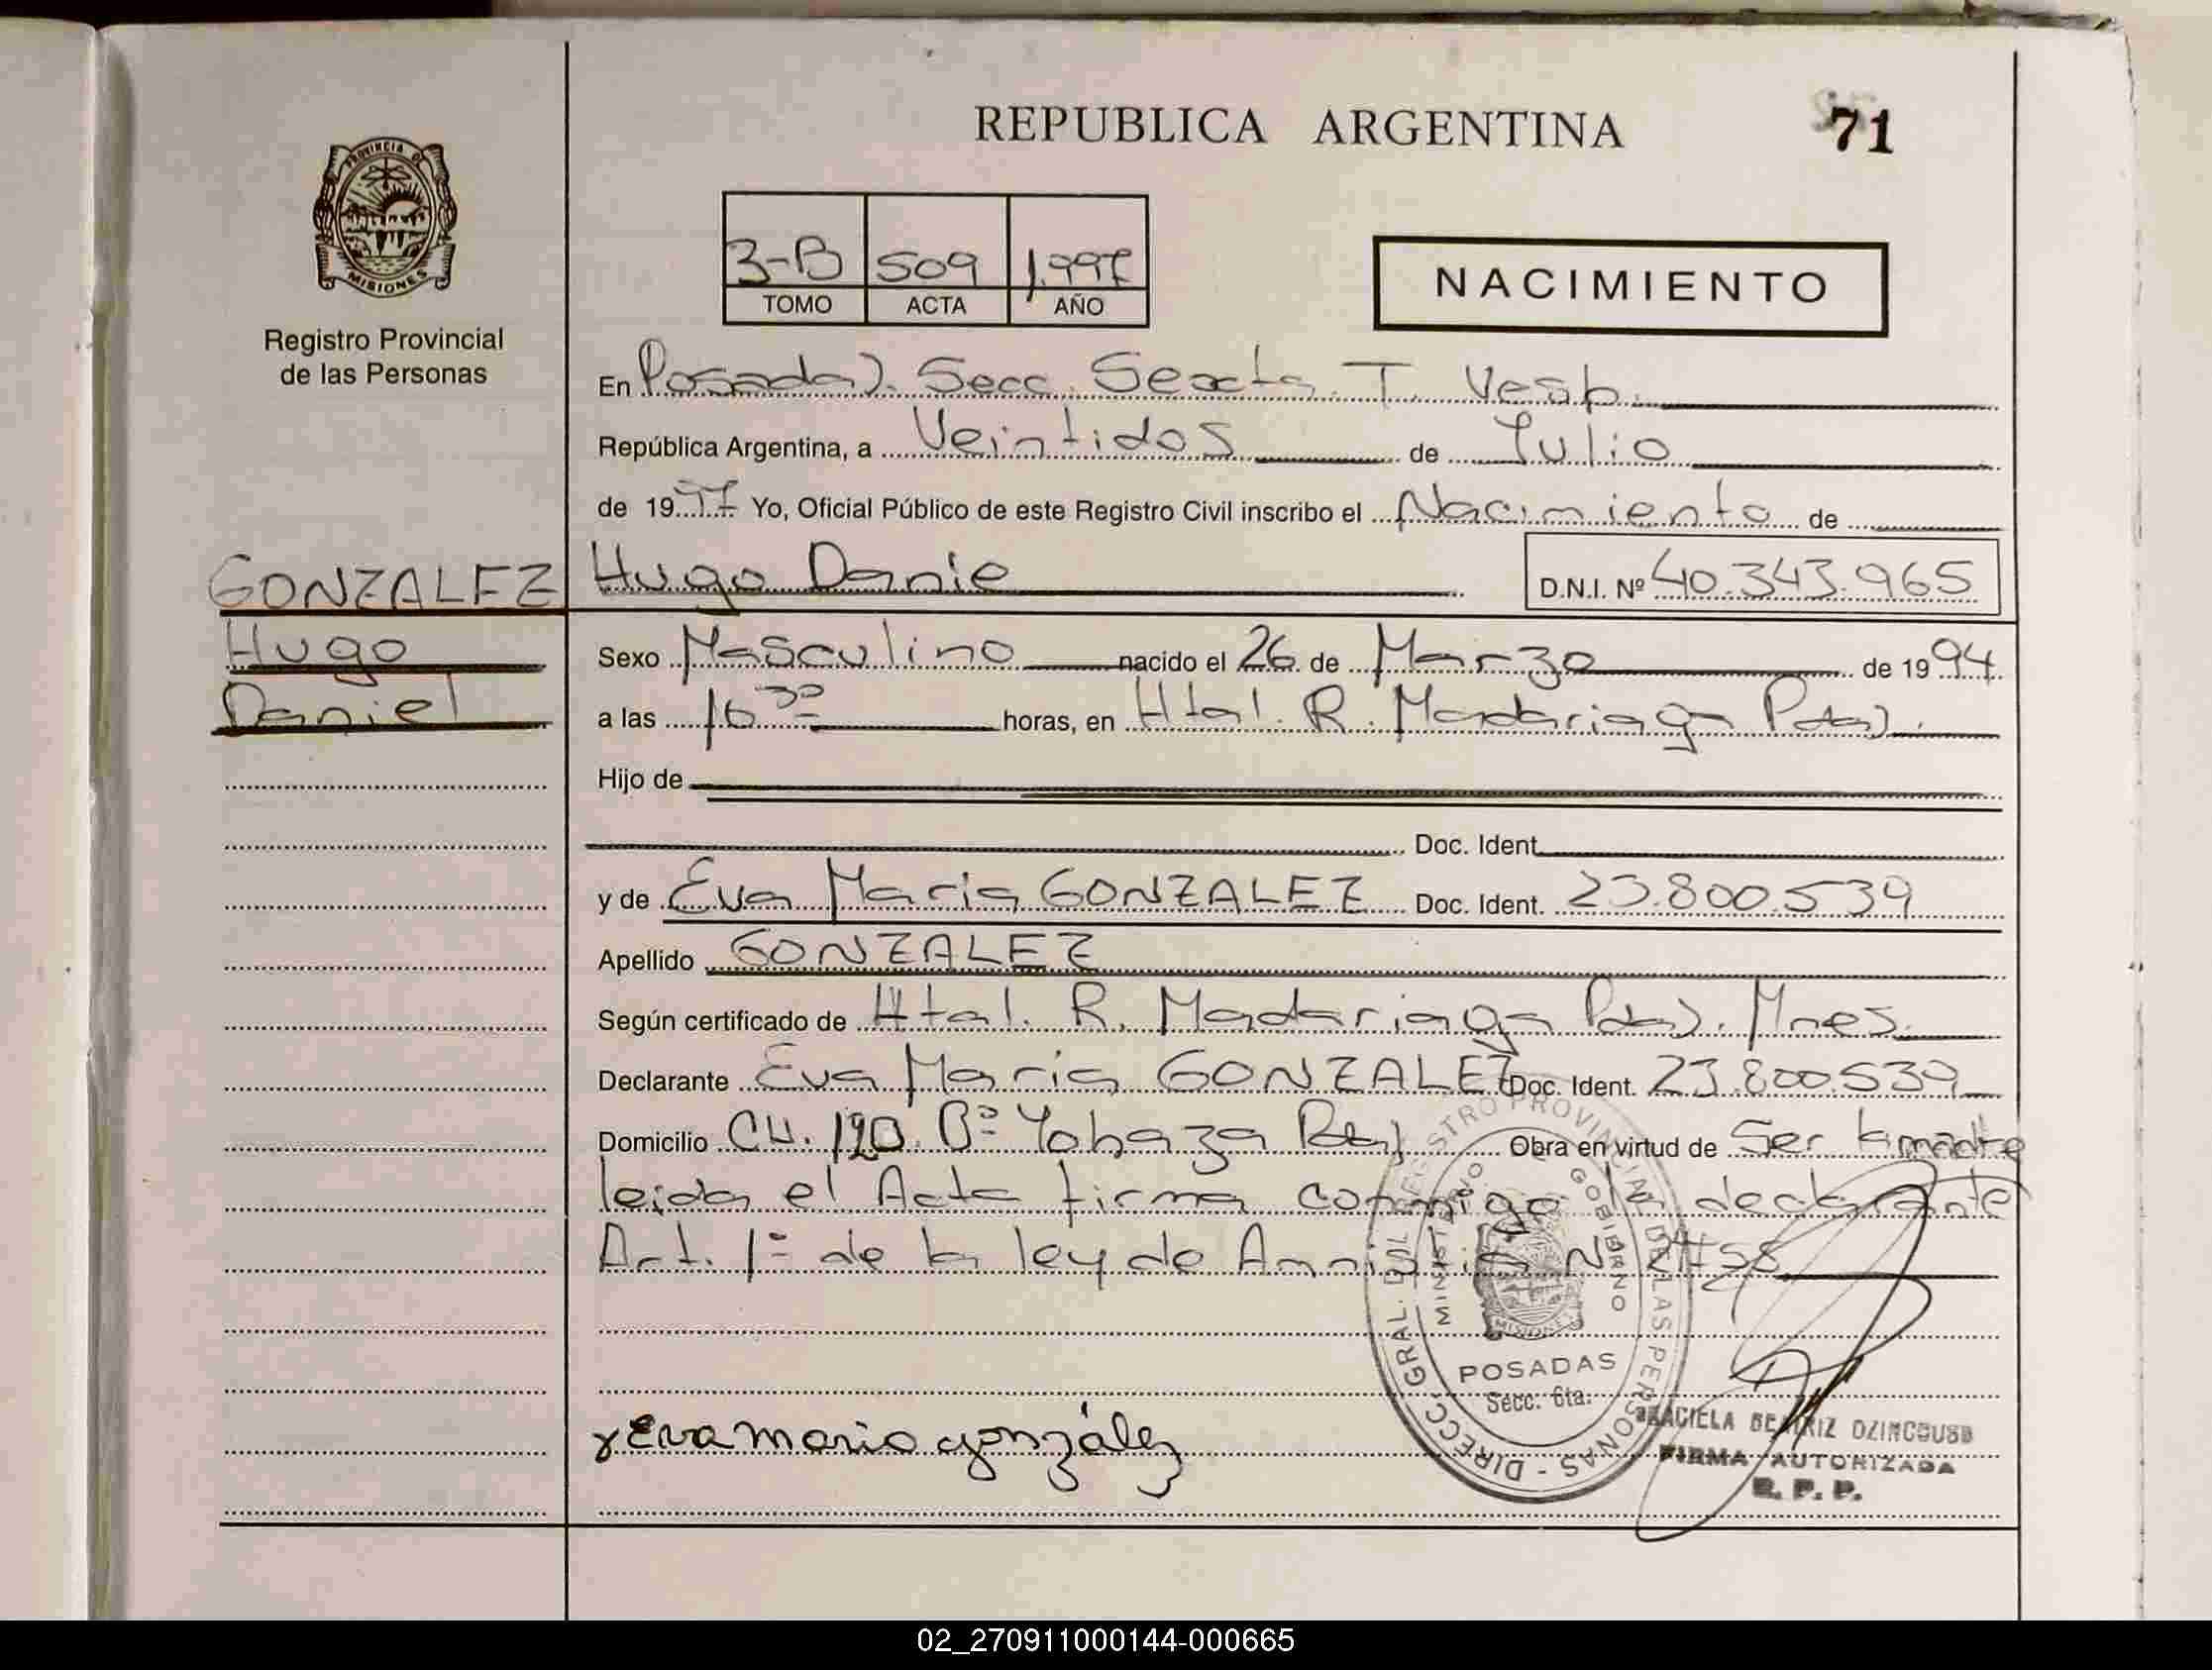 REPUBLICA ARGENTINA
71
PROVINCIA D
MISIONES
Registro Provincial
de las Personas
3-B 509 1.997
TOMO ACTA AÑO
NACIMIENTO
En Posadas. Secc. Sexta. T. Vesp.
República Argentina, a Veintidos de Julio
de 1997 Yo, Oficial Público de este Registro Civil inscribo el Nacimiento de
GONZALEZ
Hugo
Daniel
Hugo Danie
D.N.I. Nº 40.343.965
Sexo Masculino nacido el 26 de Marzo de 1994
a las 16 30 horas, en Htal. R. Madariaga Pdas.
Hijo de
Doc. Ident.
y de Eva Maria GONZALEZ Doc. Ident. 23.800.539
Apellido GONZALEZ
Según certificado de Htal. R. Madariaga Pdas. Mnes.
Declarante Eva Maria GONZALEZ Doc. Ident. 23.800.539
Domicilio CH. 120 Bº Yohaza Pdas Obra en virtud de Ser la madre
leida el Acta firma conmigo la declarante
Art. 1º de la ley de Amnistia Nº 2455
DIRECC. GRAL. DEL REGISTRO PROVINCIAL DE LAS PERSONAS -
MINISTERIO GOBIERNO
MISIONES
POSADAS
Secc. 6ta.
Eva maria gonzález
GRACIELA BEATRIZ DZINCOUSB
FIRMA AUTORIZADA
R. P. P.
02_270911000144-000665